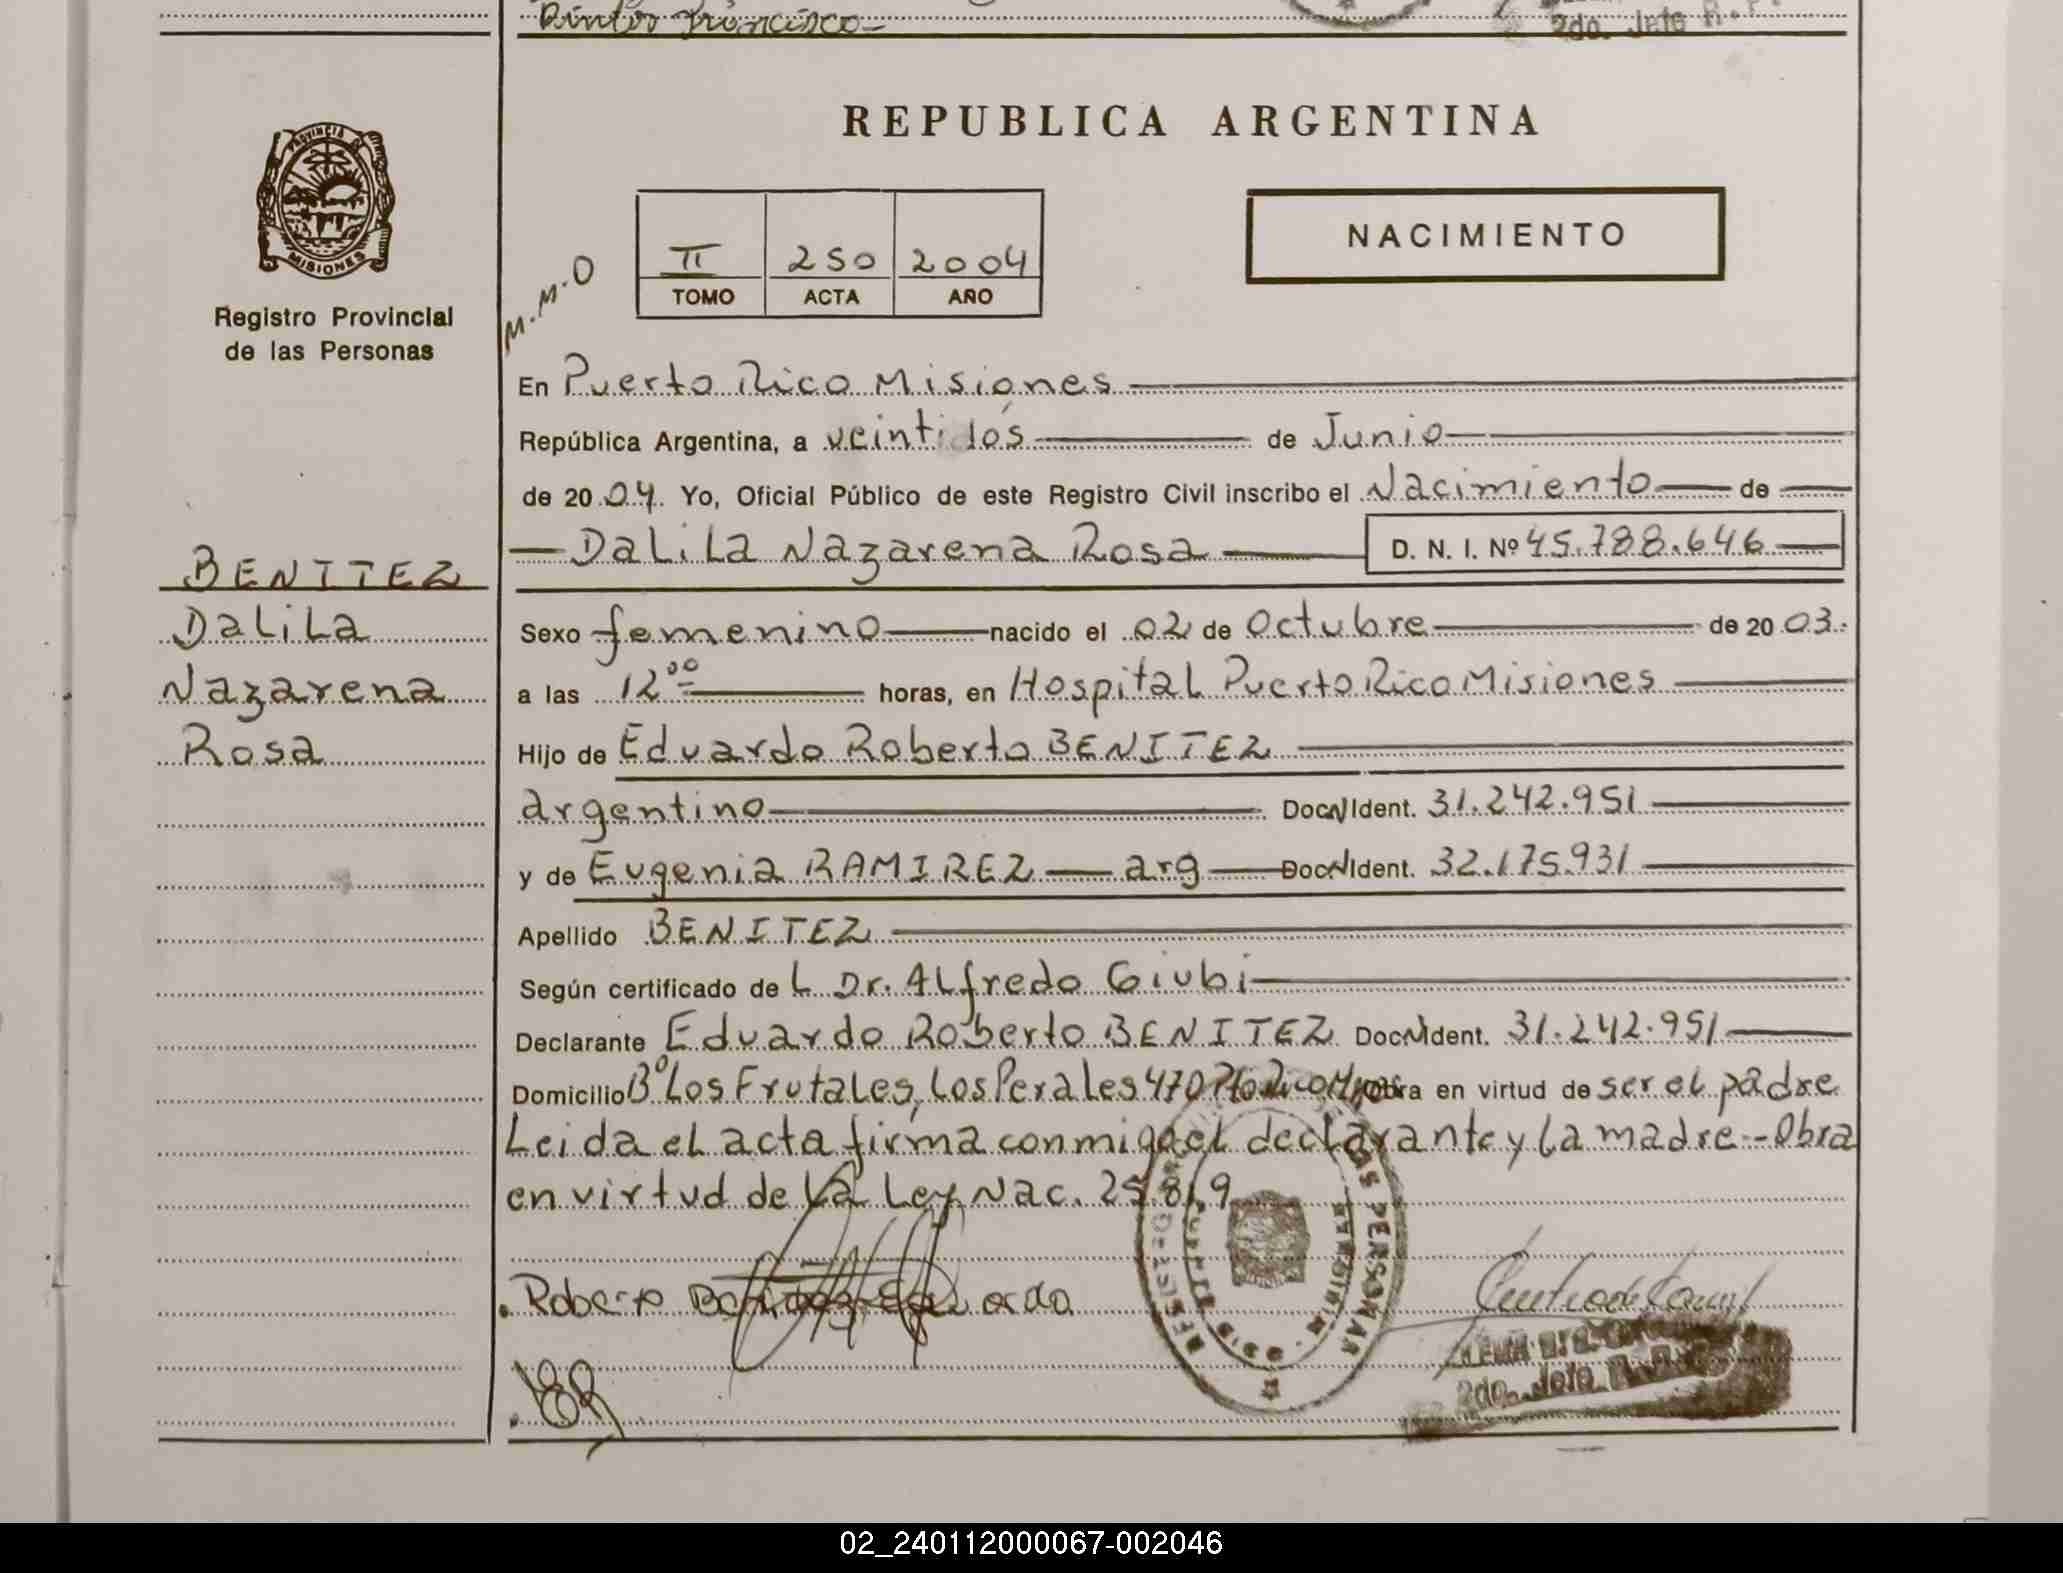 Francisco
2do. Jefe R.P.
REPUBLICA ARGENTINA
PROVINCIA DE
MISIONES
Registro Provincial
de las Personas
M.M.O
II 250 2004
TOMO ACTA AÑO
NACIMIENTO
En Puerto Rico Misiones
República Argentina, a veintidós de Junio
de 2004. Yo, Oficial Público de este Registro Civil inscribo el Nacimiento de
Dalila Nazarena Rosa D. N. I. Nº 45.788.646
BENITEZ
Dalila
Nazarena
Rosa
Sexo femenino nacido el 02 de Octubre de 2003.
a las 12 00 horas, en Hospital Puerto Rico Misiones
Hijo de Eduardo Roberto BENITEZ
argentino Doc. N. Ident. 31.242.951
y de Eugenia RAMIREZ arg Doc. N. Ident. 32.175.931
Apellido BENITEZ
Según certificado de L Dr. Alfredo Giubi
Declarante Eduardo Roberto BENITEZ Doc. N. Ident. 31.242.951
Domicilio Bº Los Frutales, Los Perales 470 Pto Rico Mnes Obra en virtud de ser el padre
Leida el acta firma conmigo el declarante y la madre-- Obra
en virtud de la Ley Nac. 25.819
Roberto Benitez Eduardo
ER
2do. Jefe R.P.
02_240112000067-002046